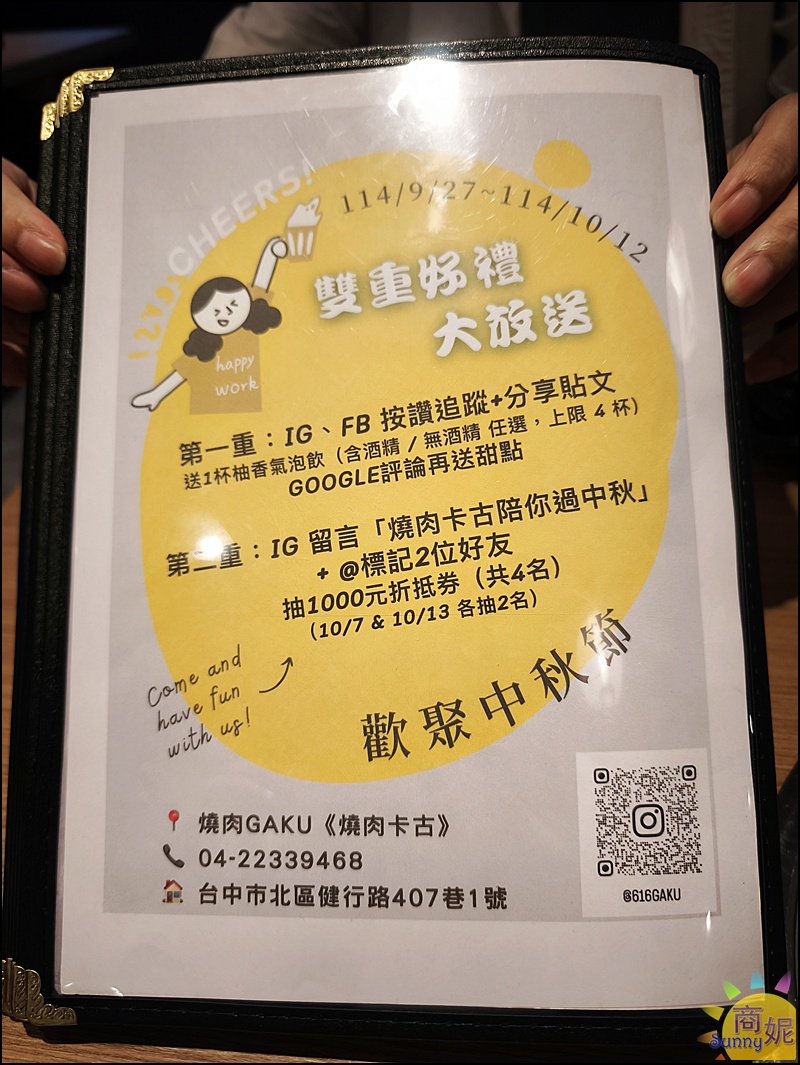 CHEERS!
114/9/27~114/10/12
雙重好禮
大放送
happy
work
第一重：IG、FB 按讚追蹤+分享貼文
送1杯柚香氣泡飲（含酒精 / 無酒精 任選，上限 4 杯）
GOOGLE評論再送甜點
第二重：IG 留言「燒肉卡古陪你過中秋」
+ @標記2位好友
抽1000元折抵券（共4名）
（10/7 & 10/13 各抽2名）
Come and
have fun
with us!
歡聚中秋節
燒肉GAKU《燒肉卡古》
04-22339468
台中市北區健行路407巷1號
@616GAKU
商妮
Sunny